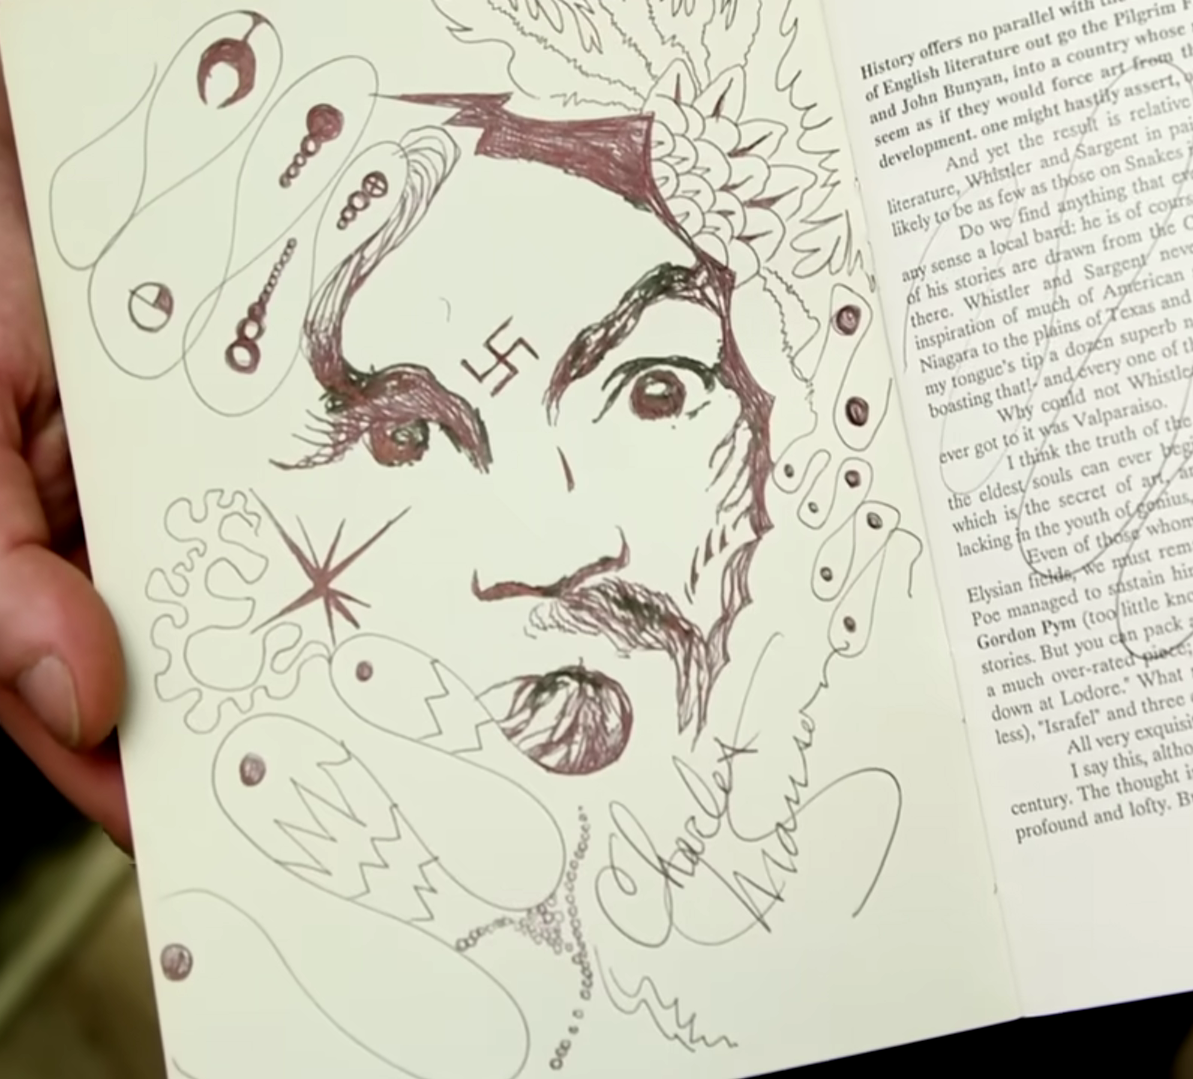 Charles
Manson
History offers no parallel with
of English literature out go the Pilgrim
and John Bunyan, into a country whose
seem as if they would force art from
development. one might hastily assert,
And yet the result is relative
literature, Whistler and Sargent in
likely to be as few as those on Snakes
Do we find anything that
any sense a local bard: he is of
of his stories are drawn from the
there. Whistler and Sargent
inspiration of much of American
Niagara to the plains of Texas and
my tongue's tip a dozen superb
boasting that!- and every one of
Why could not Whistler
ever got to it was Valparaiso.
I think the truth of the
the eldest souls can ever
which is the secret of art,
lacking in the youth of genius,
Even of those whom
Elysian fields, we must
Poe managed to sustain
Gordon Pym (too little
stories. But you can pack
a much over-rated piece;
down at Lodore." What
less), "Israfel" and three
All very
I say this,
century. The thought
profound and lofty.